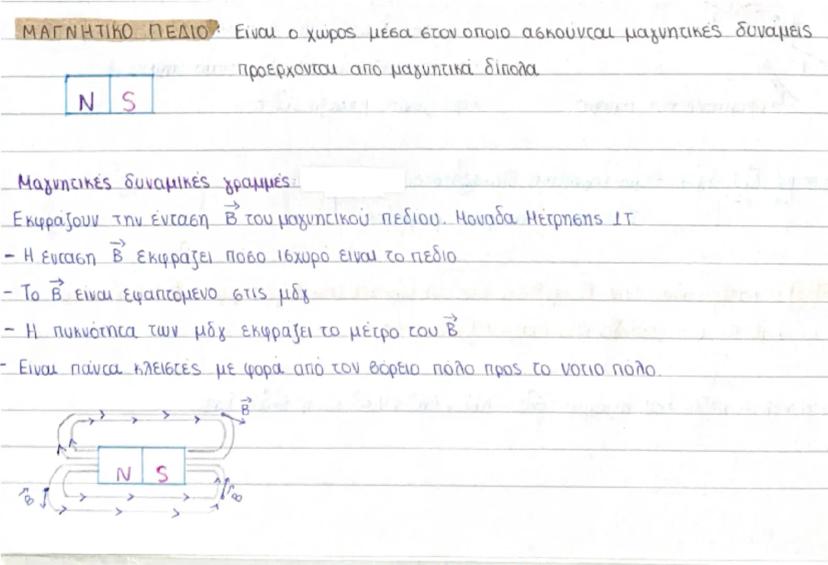 ΜΑΓΝΗΤΙΚΟ ΠΕΔΙΟ: Είναι ο χώρος μέσα στον οποιο ασκούνται μαγνητικές δυναμεις
προερχονται από μαγνητικά δίπολα
N S
Μαγνητικές δυναμικές γραμμές:
Εκφράζουν την ένταση B⃗ του μαγνητικού πεδίου. Μοναδα Μέτρησης 1T
- Η ενταση B⃗ εκφραζει ποσο ισχυρό ειναι το πεδιο
- Το B⃗ είναι εφαπτόμενο στις μδγ
- Η πυκνότητα των μδγ εκφραζει το μέτρο του B⃗
- Ειναι πάντα κλειστές με φορά από τον βόρειο πολο προς το νοτιο πόλο.
B⃗
N S
B⃗ B⃗